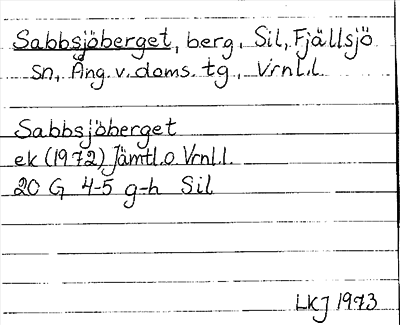 Sabbsjöberget, berg, Sil, Fjällsjö
sn, Ång. v. doms. tg, Vrnl.l.
Sabbsjöberget
ek (1972) Jämtl. o Vrnl.l.
20 G 4-5 g-h Sil
LKJ 1973